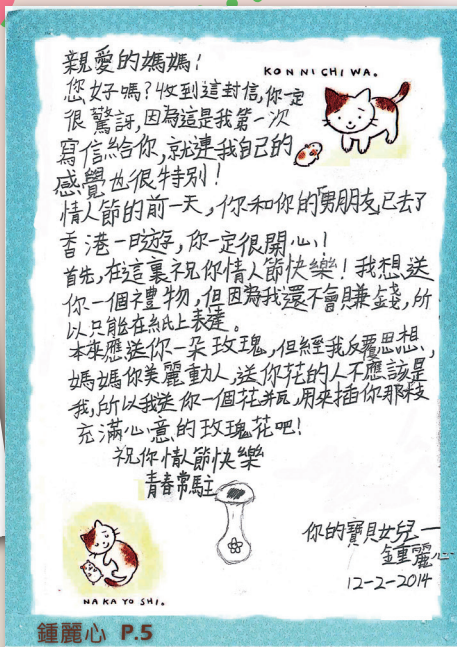 親愛的媽媽！
KONNICHIWA.
您好嗎？收到這封信,你一定
很驚訝,因為這是我第一次
寫信給你,就連我自己的
感覺也很特別！
情人節的前一天，你和你的男朋友已去了
香港一日遊,你一定很開心！
首先,在這裏祝你情人節快樂！我想送
你一個禮物，但因為我還不會賺錢，所
以只能在紙上表達。
本來應送你一朵玫瑰,但經我反覆思想,
媽媽你美麗動人,送你花的人不應該是
我,所以我送你一個花瓶,用來插你那枝
充滿心意的玫瑰花吧！
祝你情人節快樂
青春常駐
你的寶貝女兒—
鍾麗心
12-2-2014
NAKAYOSHI.
鍾麗心 P.5